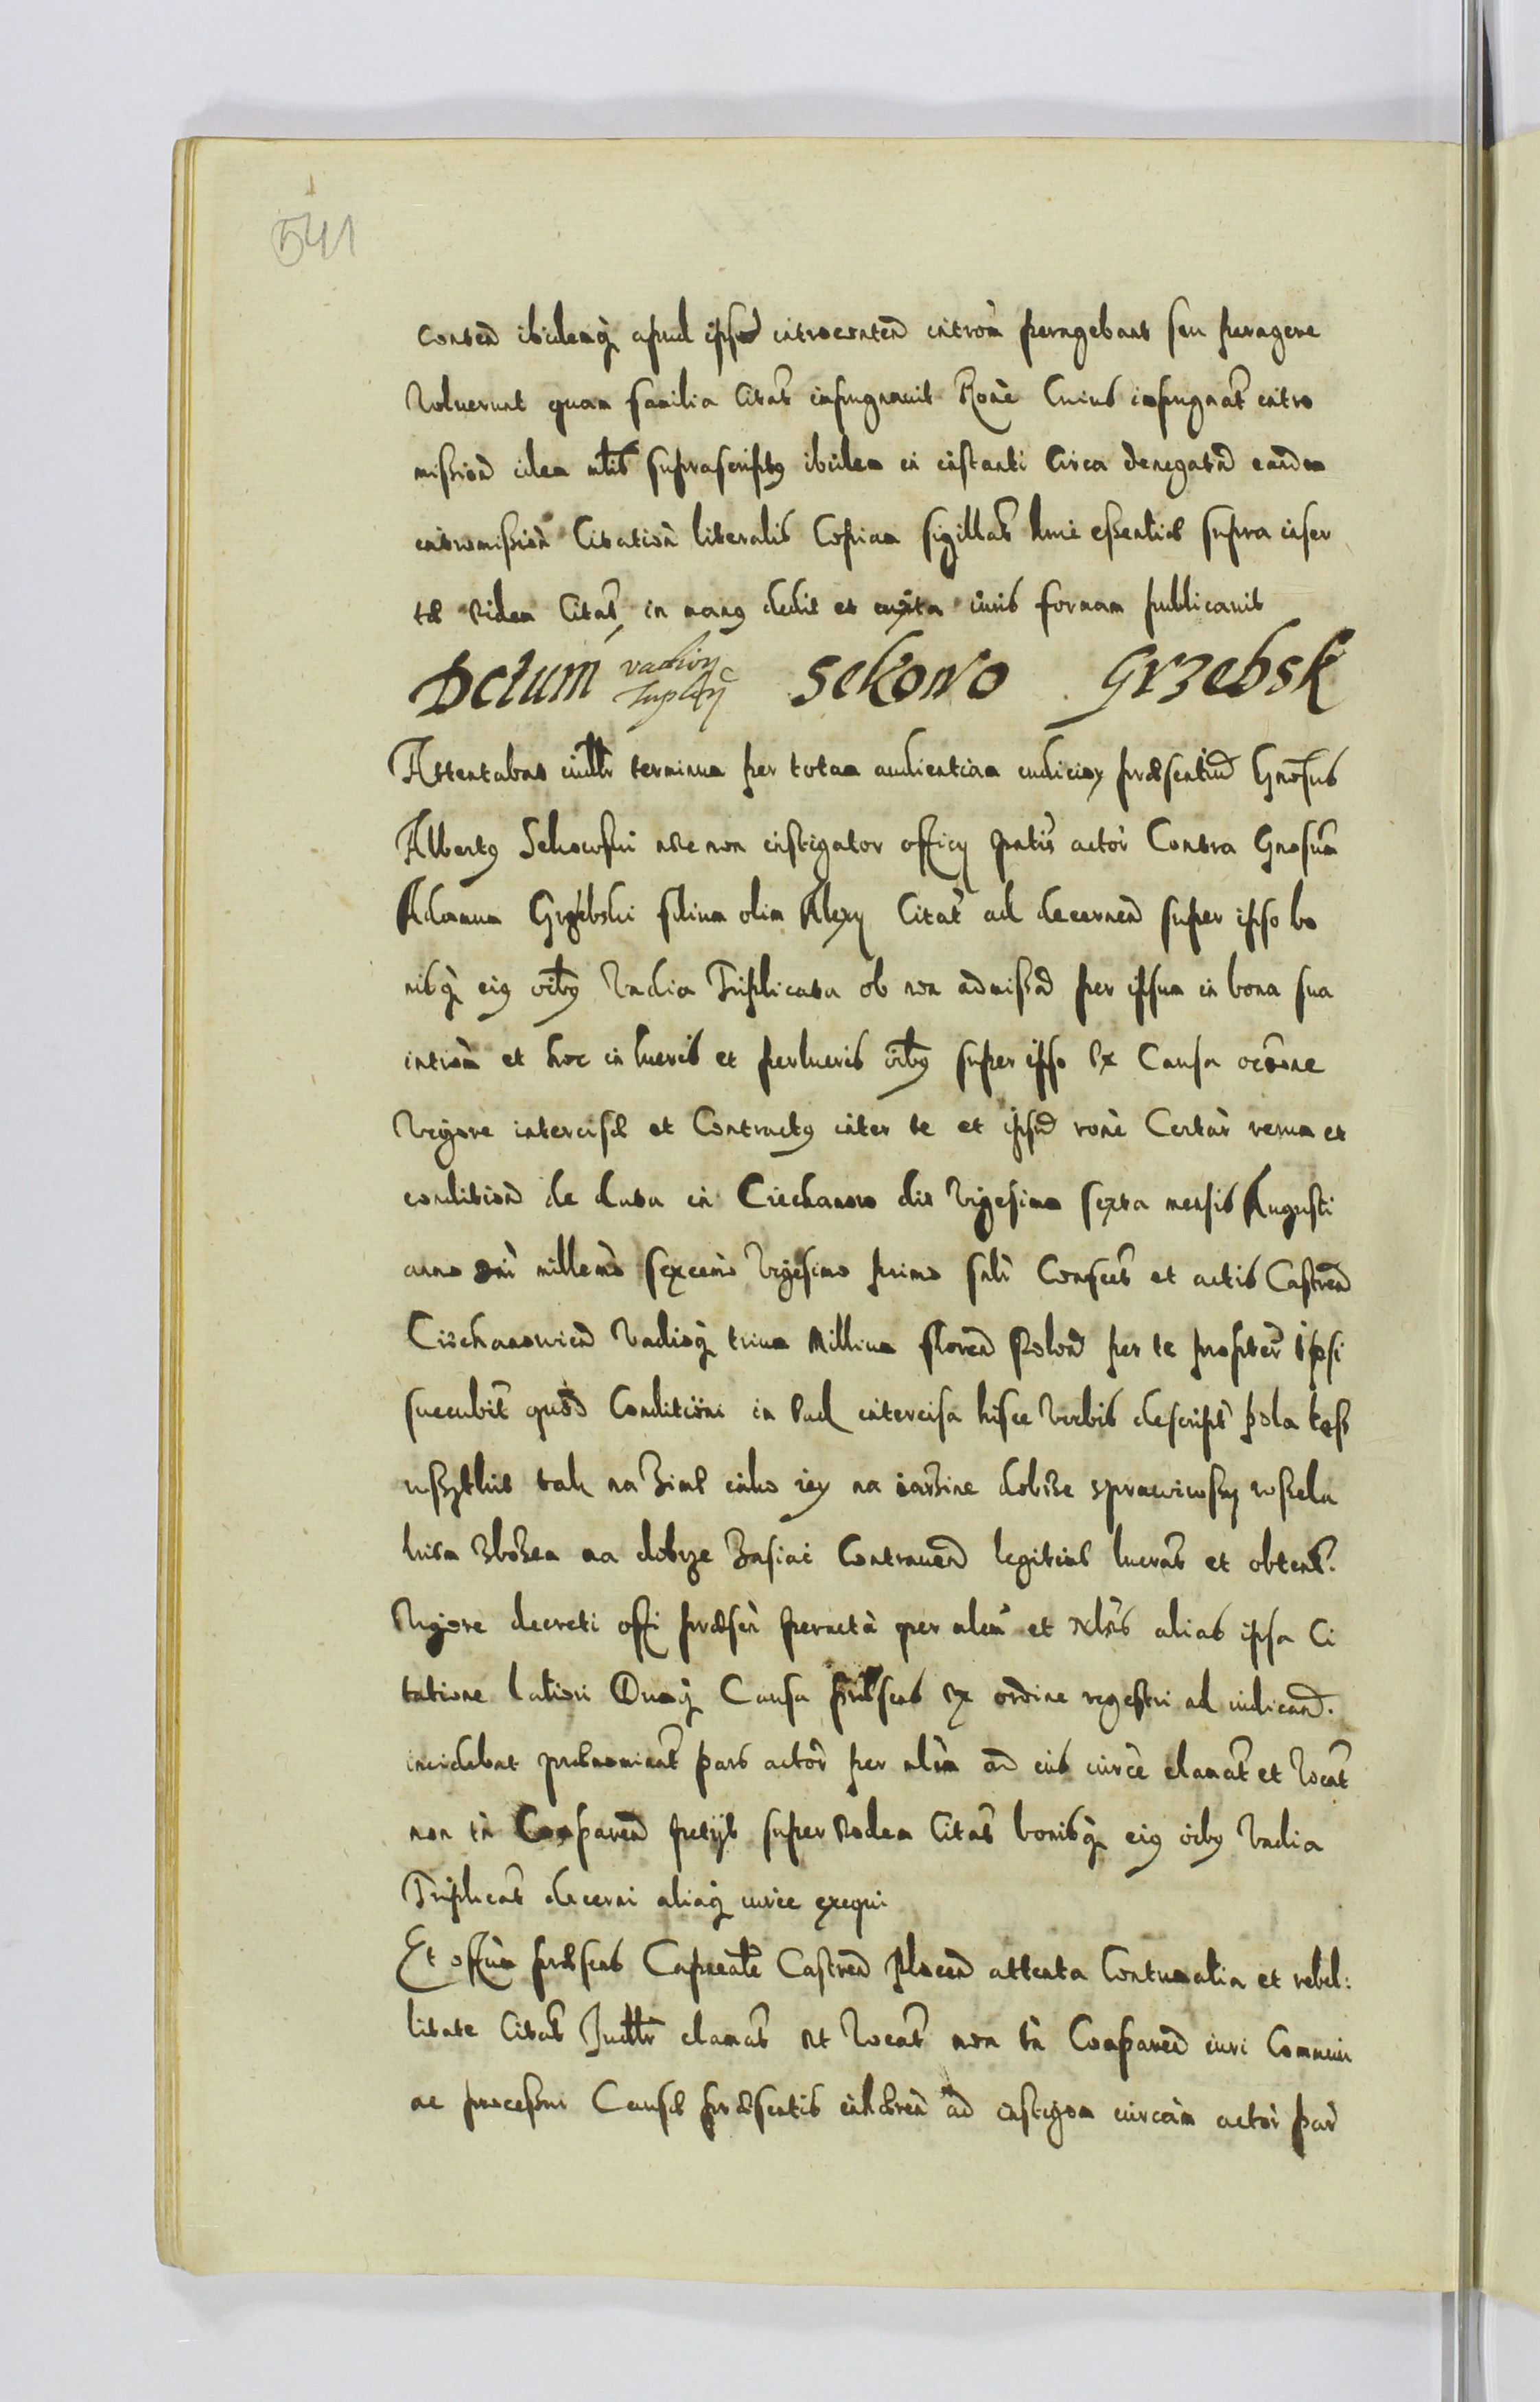 541
conten ibidemq apud ipsu introconten introm peragebant seu peragere
Voluerunt quam familia Citat inpugnauit Rone Cuius inpugnat intro
mission idem mlis supra scriptus ibidem in instanti Circa denegatn eandem
intromission Citation literalis Copiam sigillat hmoi essentiae supra inser
tae eidem Citat in manus dedit et iuxta iuris formam publicauit
Dctum vadiorum triplicium Sekowo Grzebsk
Attentabat iudlr terminum per totam audientiam iudiciorum praesentiu Gnosus
Albertus Sekowski nec non instigator officij pntis actor Contra Gnosum
Adamum Grzebski filium olim Alexij Citat ad decernen super ipso bo
nisq eius oibus Vadia Triplicata ob non admissa per ipsum in bona sua
introm et hoc in lucris et perlucris oibus super ipso ex Causa occone
Vigore intercisae et Contractus inter te et ipsu rone Certar rerum et
condition de data in Ciechanow die Vigesima sexta mensis Augusti
anno dni millemo sexcento Vigesimo primo Confect et actis Castren
Ciechanowien Vadioq trium Millium floren Polon per te propter ipsi
succubit quod Conditioni in ead intercisa hisce Verbis descript pola tesz
wszytkie tak na Zime iako iey na iarzine dobrze sprawiwszy wszela
kiem Zbozem na dobrze Zasiac Contrauen legitime lucrat et obtent.
Vigore decreti offi praesen peracta per mlem et alias ipsa Ci
tatione latiori Dumq Causa praesens ex ordine regestri ad iudicand.
incidebat praenominat pars actor per mlem ad ius iurce clamat et Vocat
non tn Comparen petijt super eodem Citat bonisq eius oibus Vadia
Triplicat decerni aliaq iurce exequi
Et offium praesens Capneale Castren Plocen attenta Contumatia et rebel:
litate Citat Judlr clamat et Vocat non tn Comparen iuri Communi
ac processui Causae praesentis inhaeren ad instigom iurceam actor par